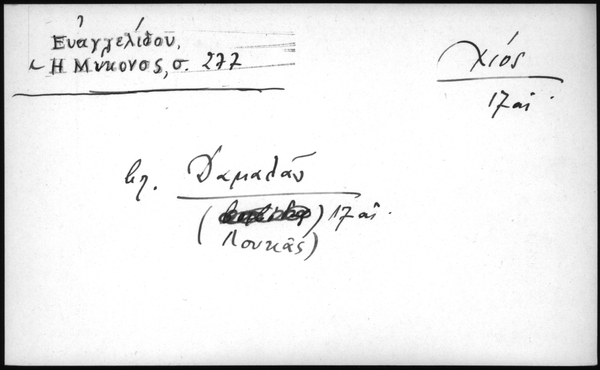 Εὐαγγελίδου,
Ἡ Μύκονος, σ. 277
Χίος
17 αἰ.
βλ. Δαμαλᾶ
( ) 17 αἰ.
Λουκᾶς)